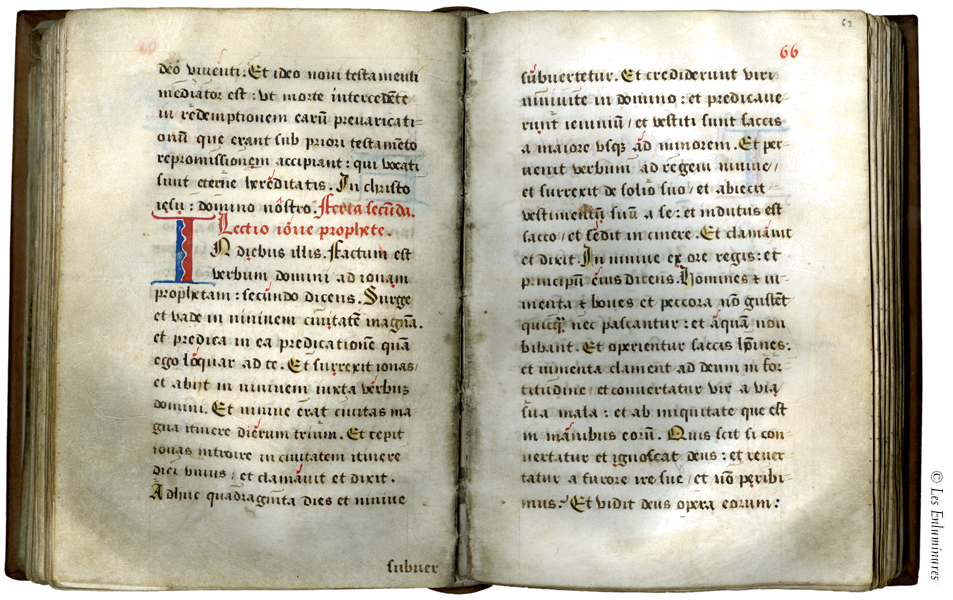 deo viventi : Et ideo noui testamenti
mediator est : vt morte intercedẽte
in redemptionem earũ preuaricati-
onũ que erant sub priori testamẽto
repromissionem accipiant : qui vocati
sunt eterne hereditatis. In christo
iesu : domino nostro. Feria secũda.
Lectio ione prophete.
IN diebus illis. Factum est
verbum domini ad ionam
prophetam : secundo dicens. Surge
et vade in niniuem ciuitatẽ magnã.
et predica in ea predicationẽ quã
ego loquar ad te. Et surrexit ionas/
et abijt in niniuem iuxta verbũ
domini. Et niniue erat ciuitas ma
gna itinere dierum trium. Et cepit
ionas introire in ciuitatem itinere
diei vnius : et clamauit et dixit.
Adhuc quadraginta dies et niniue
subuer
62
66
subuertetur. Et crediderunt viri
niniuite in domino : et predicaue-
runt ieiuniũ / et vestiti sunt saccis
a maiore vsq; ad minorem. Et per-
uenit verbum ad regem niniue/
et surrexit de solio suo / et abiecit
vestimentũ suũ a se : et indutus est
sacco / et sedit in cinere. Et clamauit
et dixit. In niniue ex ore regis : et
principũ eius dicens. Homines ⁊ iu-
menta ⁊ boues et peccora nõ gustẽt
quicq̃ nec pascantur : et aquam non
bibant. Et operientur saccis hoĩnes :
et iumenta clament ad deum in for
titudine / et conuertatur vir a via
sua mala : et ab iniquitate que est
in manibus eorũ. Quis scit si con-
uertatur et ignoscat deus : et reuer
tatur a furore ire sue / et nõ peribi-
mus : Et vidit deus opera eorum :
© Les Enluminures